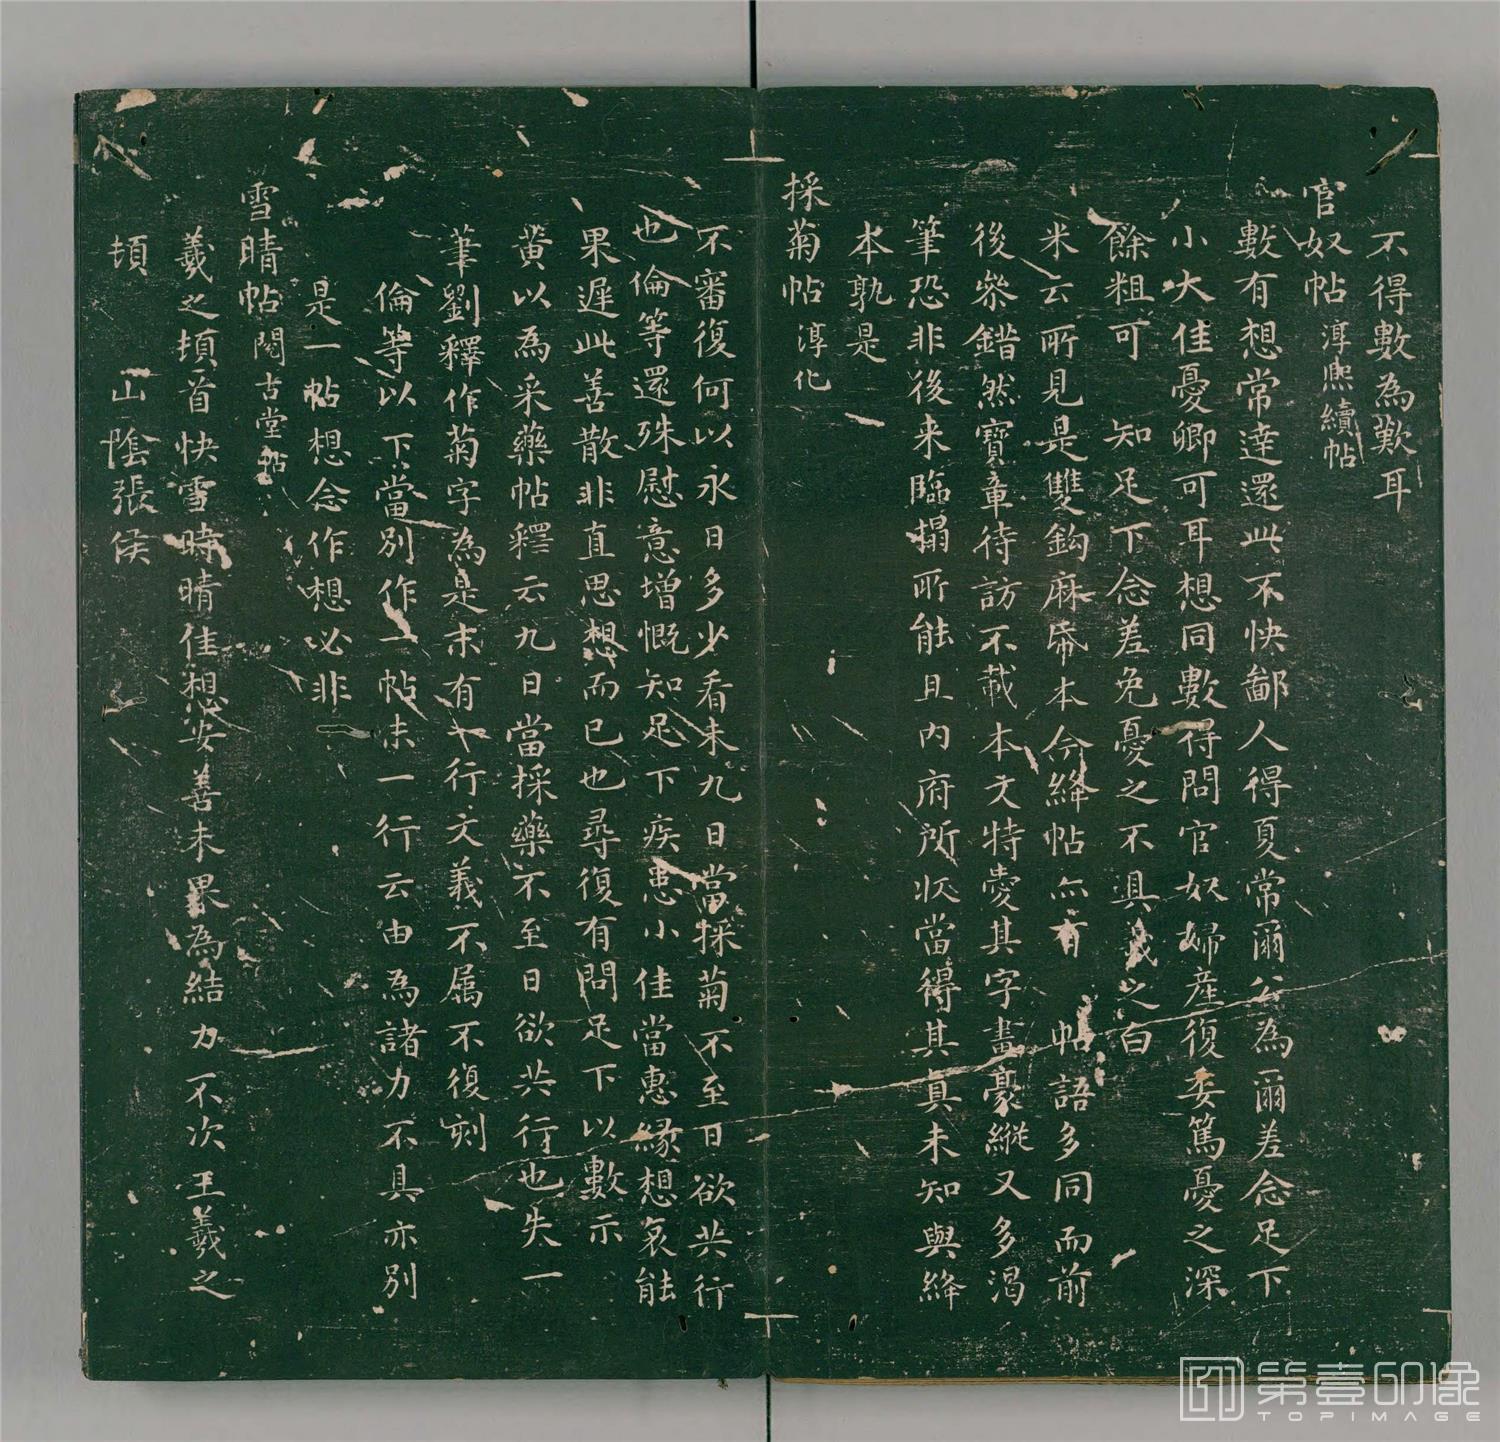 不得數為歎耳
官奴帖 淳熙續帖
數有想常達還此不快鄙人得夏常爾公為爾差念足下
小大佳憂卿可耳想同數得問官奴婦産復委篤憂之深
餘粗可 知足下念差免憂之不具羲之白
米云所見是雙鈎麻帋本今絳帖亦有 帖語多同而前
後叅錯然寶章待訪不載本文特愛其字畫豪縱又多渴
筆恐非後来臨搨所能且内府所収當得其真未知與絳
本孰是
採菊帖 淳化
不審復何以永日多少看未九日當採菊不至日欲共行
也倫等還殊慰意增慨知足下疾患小佳當惠緣想哀能
果遲此善散非直思想而已也尋復有問足下以數示
黄以為采藥帖釋云九日當採藥不至日欲共行也失一
筆劉釋作菊字為是末有一行文義不属不復刻
倫等以下當別作一帖末一行云由為諸力不具亦別
是一帖想念作想必非
雪晴帖 閱古堂帖
羲之頓首快雪時晴佳想安善未果為結力不次王羲之
頓 山陰張侯
第壹印像
TOPIMAGE